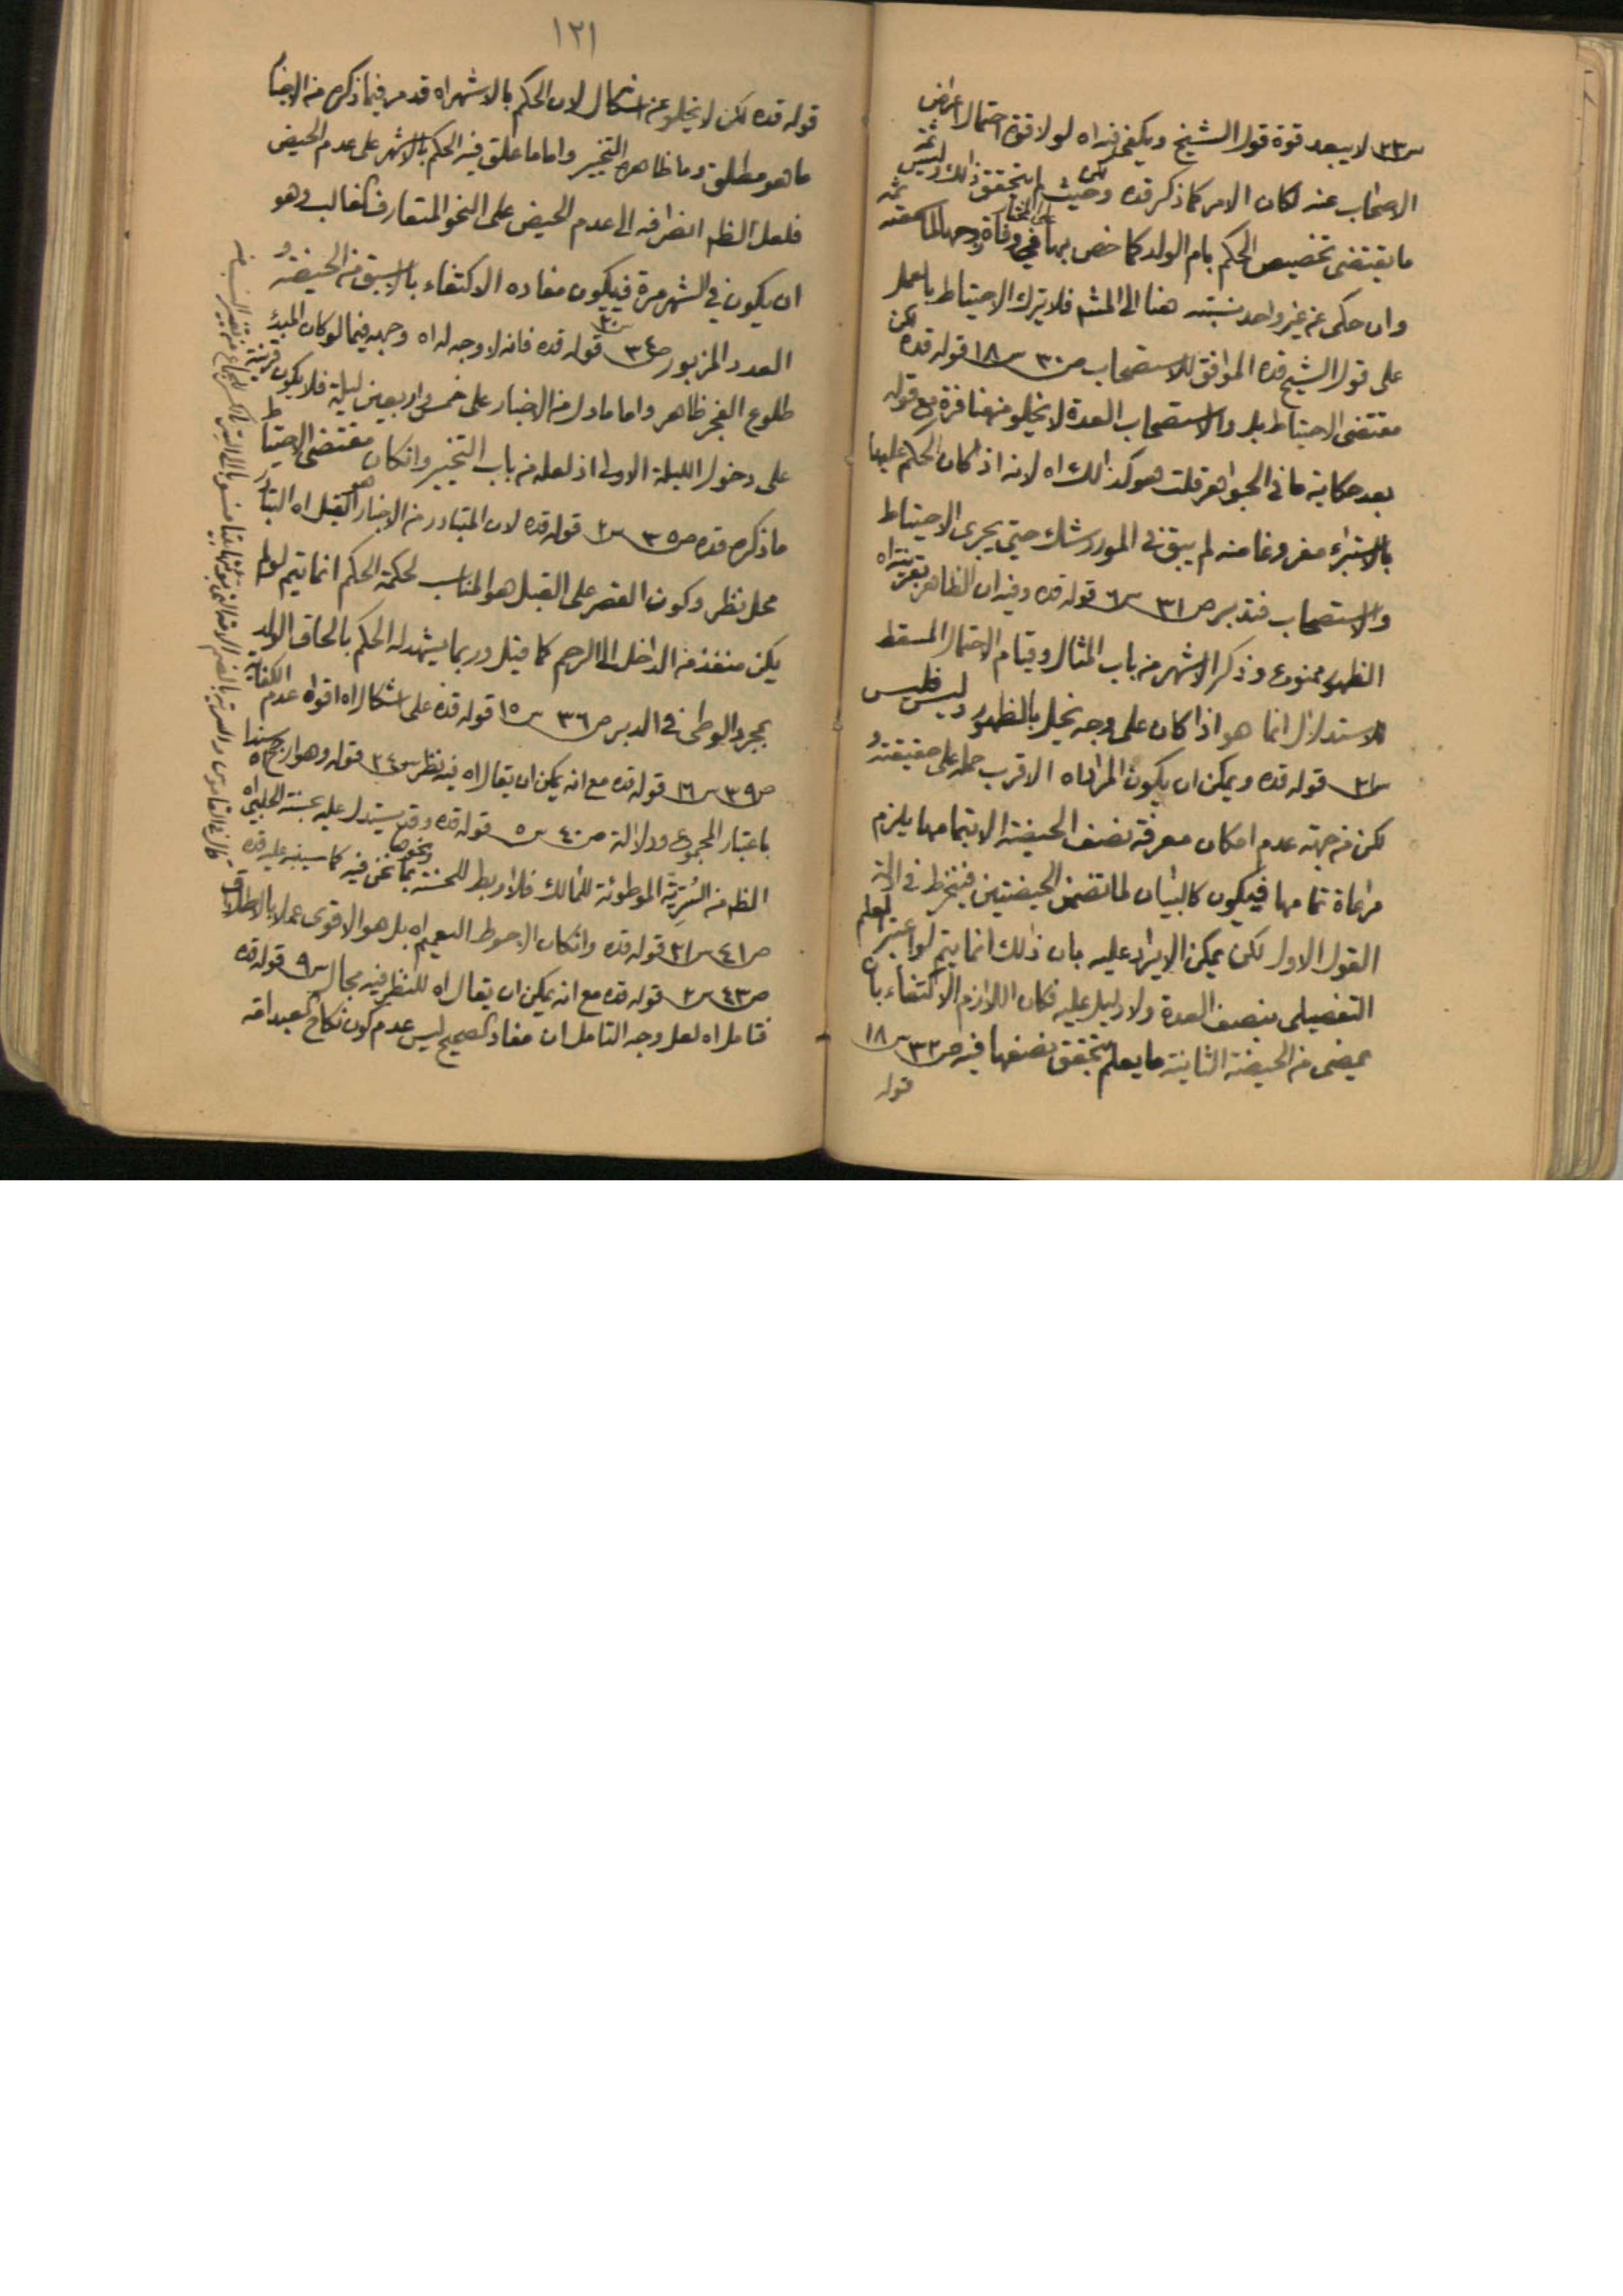 س٢٣ لا يبعد قوة قول الشيخ ويكفى فيه اه لو لا قوة احتمال اعراض
الاصحاب عنه لكان الامر كما ذكر قده لكن وحيث لم يتحقق ذلك وليس ثمة
ما يقتضى تخصيص الحكم بام الولد كما خص بها فى وفاة زوجها على المختار
وان حكى عن غير واحد نسبته هنا الى المشهر فلا يترك الاحتياط بالعمل
على قول الشيخ قده الموافق للاستصحاب ص٣٠ س١٨ قوله قده لكن
مقتضى الاحتياط بل والاستصحاب العدة لا يخلو من منافرة مع قوله
بعد حكاية ما فى الجواهر قلت هو كذلك اه لانه اذا كان الحكم عليها
بالاستبراء مفروغا منه لم يبق فى المورد شك حتى يجرى الاحتياط
والاستصحاب فتدبر ص٣١ س٦ قوله قده وفيه ان الظاهر بقرينة اه
الظهور ممنوع وذكر الاشهر من باب المثال وقيام الاحتمال المسقط
للاستدلال انما هو اذا كان على وجه يخل بالظهور وليس فليس
س٢١ قوله قده ويمكن ان يكون المراد اه الاقرب حمله على حقيقته و
لكن من جهة عدم امكان معرفة نصف الحيضة الا بتمامها يلزم
مراعاة تمامها فيكون كالبيان لما تضمن الحيضتين فينخرط فى ادلة
القول الاول لكن يمكن الايراد عليه بان ذلك انما يتم لو اعتبر العلم
التفصيلى بنصف العدة ولا دليل عليه فكان اللازم الاكتفاء بان
يمضى من الحيضة الثانية ما يعلم بتحقق نصفها فيه ص٣٢ س١٨
قوله
١٢١
قوله قده لكن لا يخلو عن اشكال لان الحكم بالاشهر اه قد مر فيما ذكره من الاخبار
ما هو مطلق وما ظاهره التخيير واما ما علق فيه الحكم بالاشهر على عدم الحيض
فلعل الظم انصرافه الى عدم الحيض على النحو المتعارف الغالب وهو
ان يكون فى الشهر مرة فيكون مفاده الاكتفاء بالاسبق من الحيضة و
العدد المزبور ص٣٤ س٢٠ قوله قده فانه لا وجه له اه وجهه فيما لو كان المبدء
طلوع الفجر ظاهر واما ما دل من الاخبار على خمس واربعين ليلة فلا يكون قرينة
على دخول الليلة الاولى اذ لعله من باب التخيير وان كان مقتضى الاحتياط
ما ذكره قده ص٣٥ س٢ قوله قده لان المتبادر من الاخبار هو القبل اه التبادر
محل نظر وكون القصر على القبل هو المناسب لحكمة الحكم انما يتم لو لم
يكن منفذ من الداخل الى الرحم كما قيل وربما يشهد له الحكم بالحاق الولد
بمجرد الوطى فى الدبر ص٣٦ س١٥ قوله قده على اشكال اه اقواه عدم الكفاية
ص٣٩ س١٦ قوله قده مع انه يمكن ان يقال اه فيه نظر س٢٤ قوله وهو ارجح سندا اه
باعتبار المجموع ودلالة ص٤٠ س٥ قوله قده وقد يستدل عليه بحسنة الحلبى اه
الظم من السرية الموطوئة للمالك فلا ربط للحسنة ونحوها بما نحن فيه كما سينبه عليه قده
ص٤١ س٢١ قوله قده وان كان الاحوط التعميم اه بل هو الاقوى عملا بالاطلاق
ص٤٣ س٢ قوله قده مع انه يمكن ان يقال اه للنظر فيه مجال س٩ قوله قده
فتامل اه لعل وجه التامل ان مفاد الصحيح ليس عدم كون نكاح العبد امته